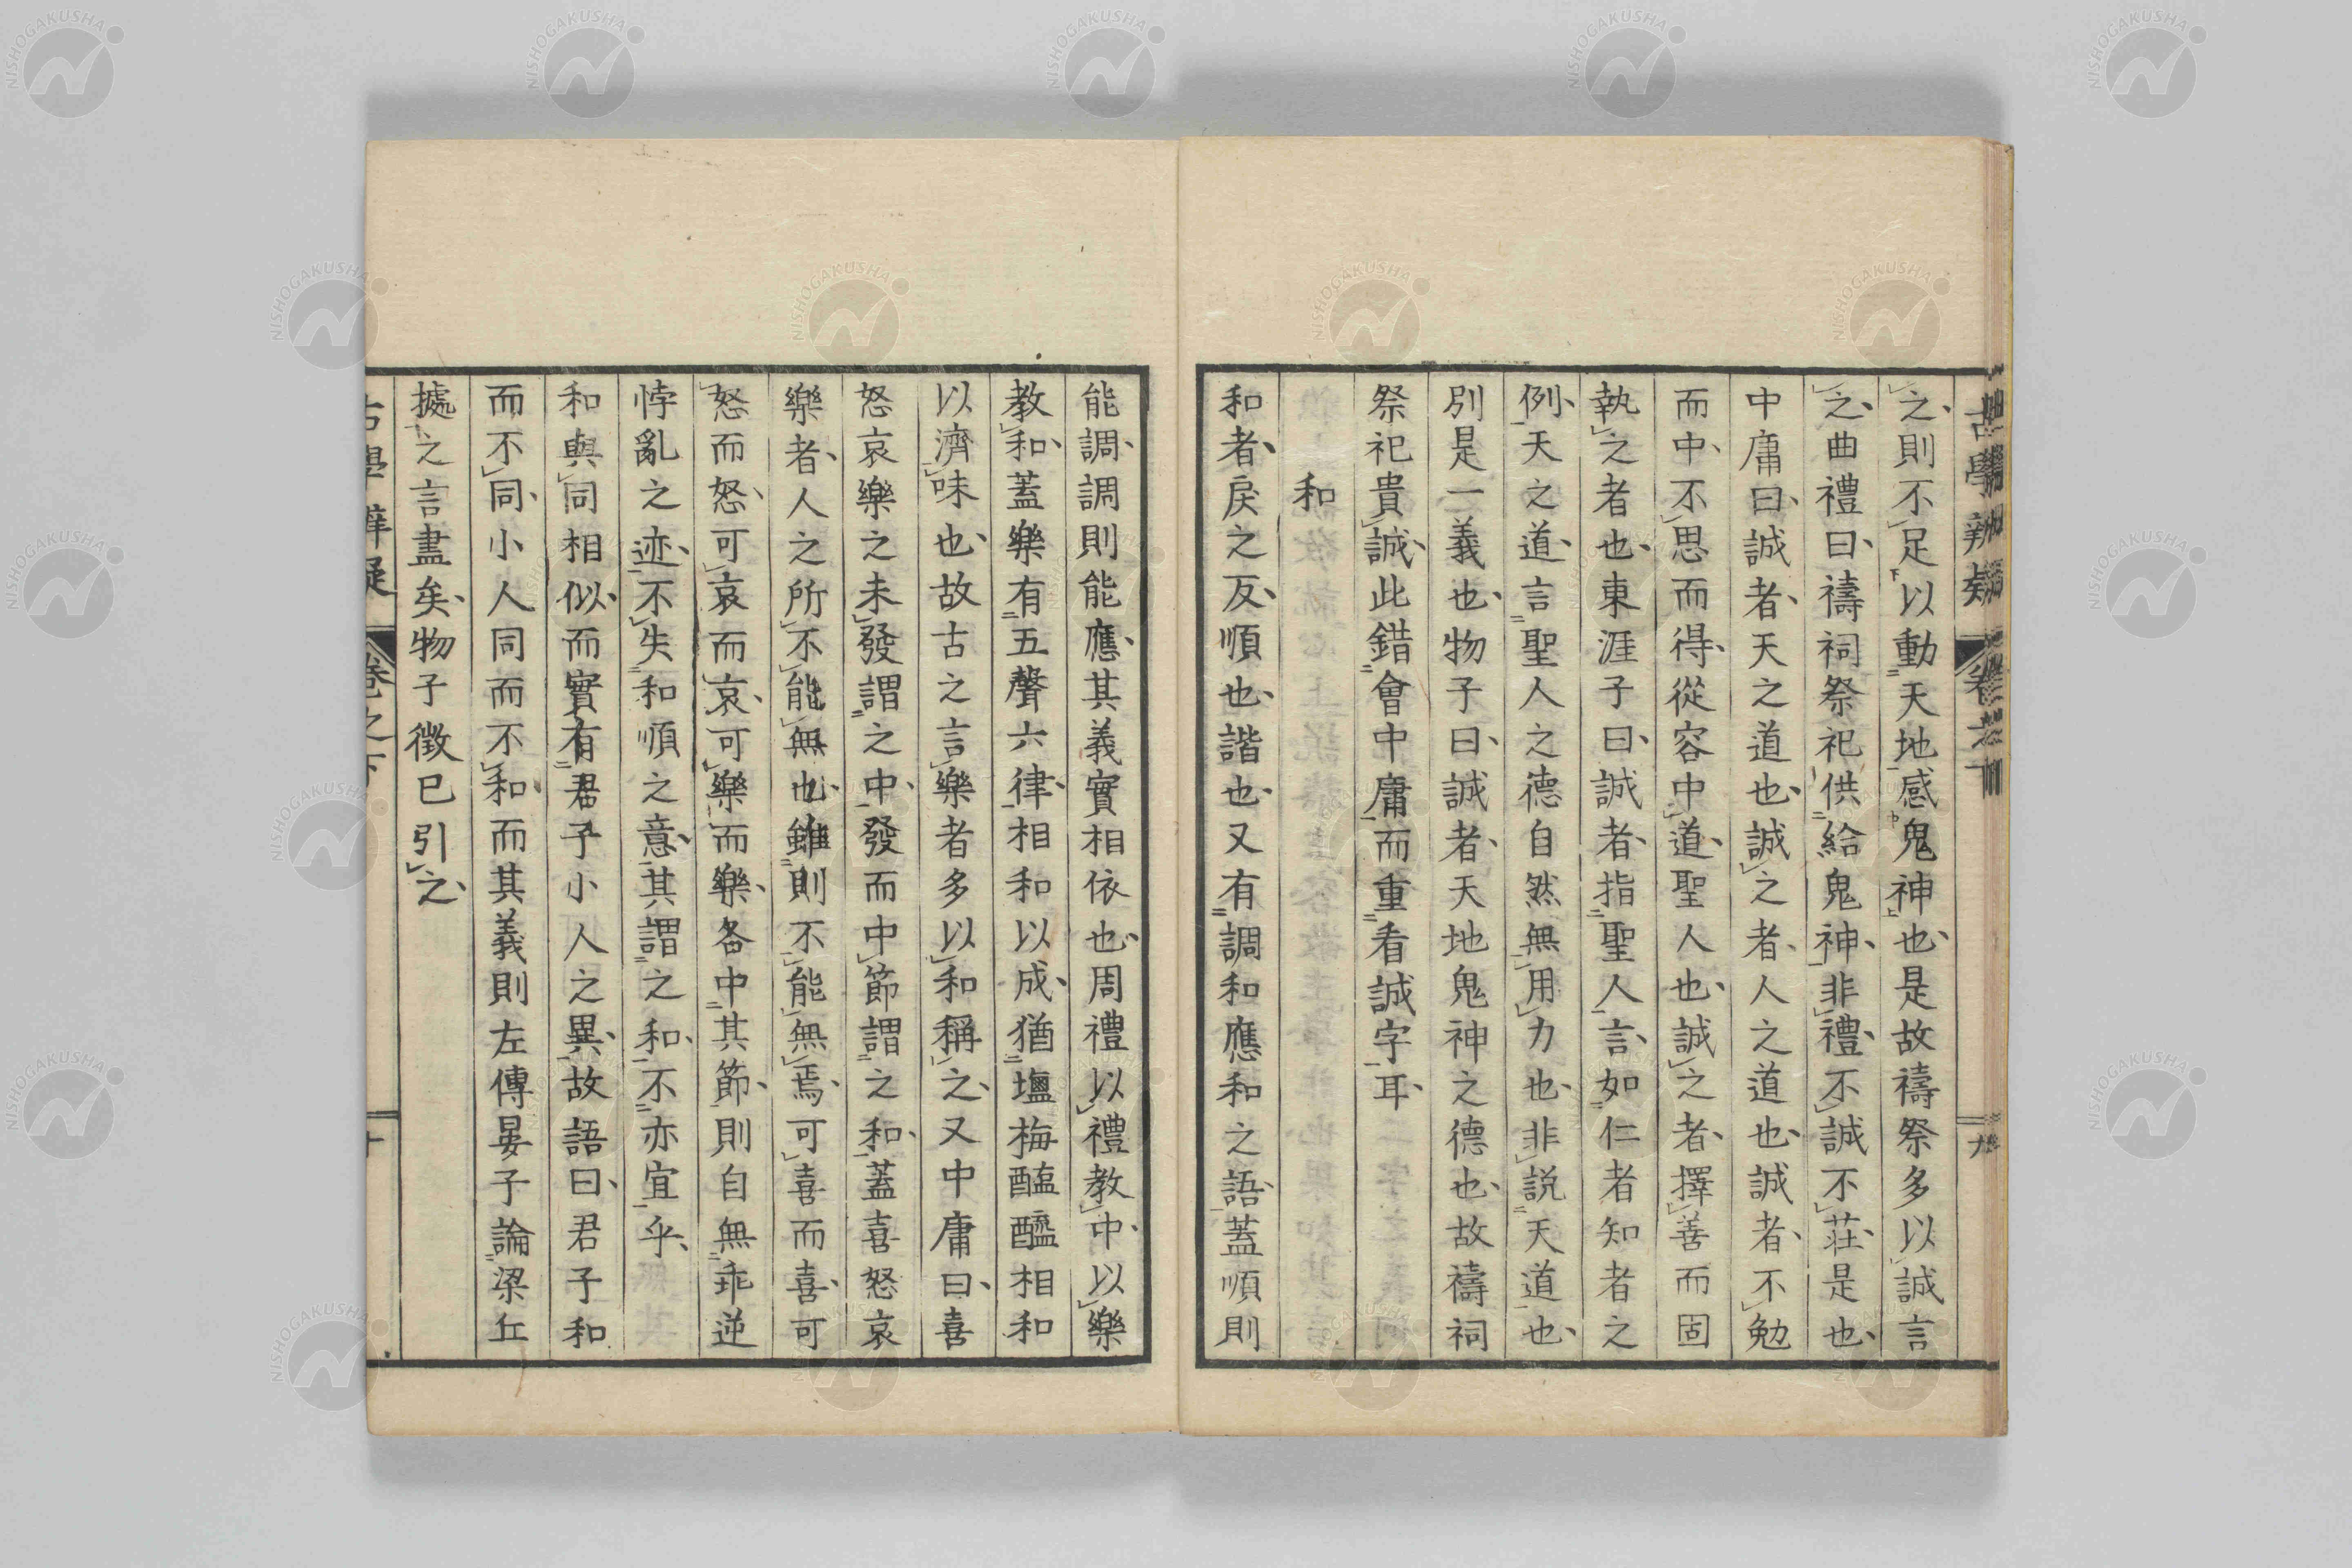 之則不足以動天地感鬼神也是故禱祭多以誠言
之曲禮曰禱祠祭祀供給鬼神非禮不誠不莊是也
中庸曰誠者天之道也誠之者人之道也誠者不勉
而中不思而得從容中道聖人也誠之者擇善而固
執之者也東涯子曰誠者指聖人言如仁者知者之
例天之道言聖人之德自然無用力也非説天道也
別是一義也物子曰誠者天地鬼神之德也故禱祠
祭祀貴誠此錯會中庸而重看誠字耳
和
和者戾之反順也諧也又有調和應和之語蓋順則
能調調則能應其義實相依也周禮以禮教中以樂
教和蓋樂有五聲六律相和以成猶塩梅醢醯相和
以濟味也故古之言樂者多以和稱之又中庸曰喜
怒哀樂之未發謂之中發而中節謂之和蓋喜怒哀
樂者人之所不能無也雖則不能無焉可喜而喜可
怒而怒可哀而哀可樂而樂各中其節則自無乖逆
悖亂之迹不失和順之意其謂之和不亦宜乎
和與同相似而實有君子小人之異故語曰君子和
而不同小人同而不和而其義則左傳晏子論梁丘
據之言盡矣物子徵已引之
古學辨疑 卷之下 十
NISHOGAKUSHA